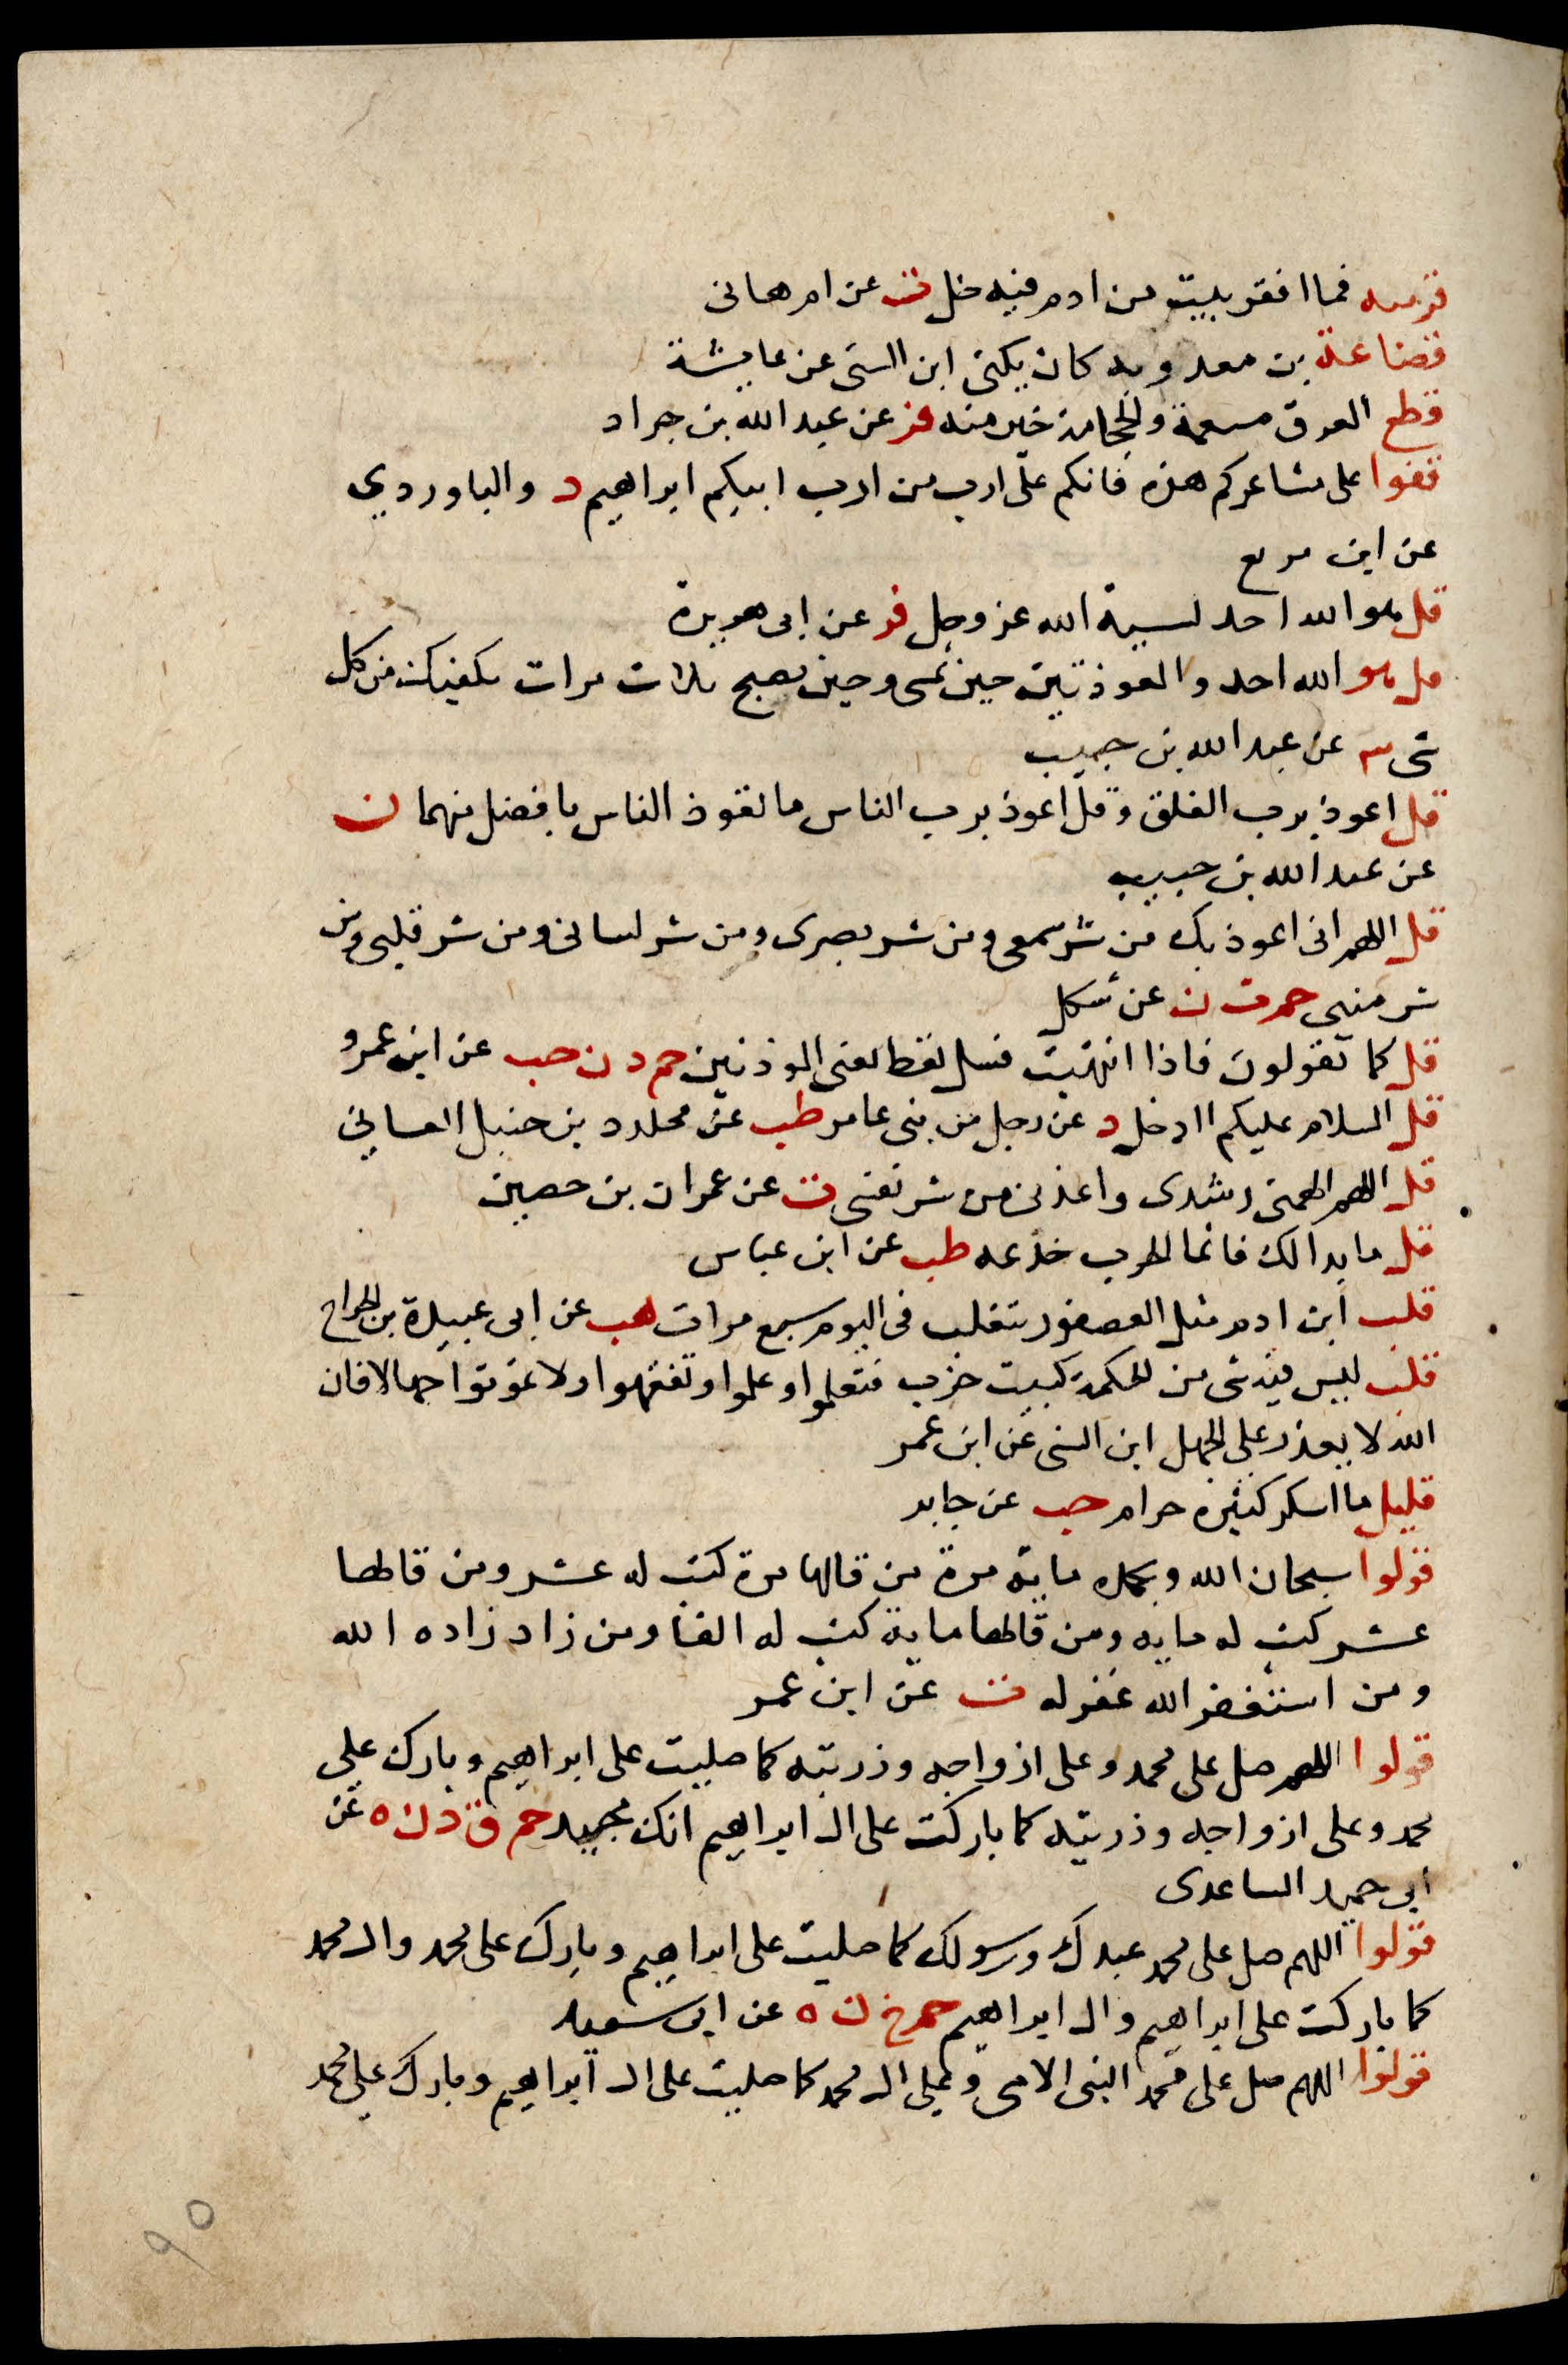 قرىىه فما افقر بيت من ادم فيه خل ت عن ام هانى
قضاعة بن معد وبه كان يكنى ابن السنى عن عايشة
قطع العروق مسقمة والحجامة خير منه فر عن عبد الله بن جراد
قفوا على مشاعركم هذه فانكم على ارث من ارث ابيكم ابراهيم د والباوردي
عن ابن مربع
قل هو الله احد نسبة الله عز وجل فر عن ابى هريرة
قل هو الله احد والمعوذتين حين تمسى وحين تصبح ثلاث مرات يكفيك من كل
شى ٣ عن عبد الله بن حبيب
قل اعوذ برب الفلق وقل اعوذ برب الناس ما تعوذ الناس بافضل منهما ن
عن عبد الله بن حبيب
قل اللهم انى اعوذ بك من شر سمعى ومن شر بصرى ومن شر لسانى ومن شر قلبى ومن
شر منيى حم ت ن عن شكل
قل كما يقولون فاذا انتهيت فسل تعط يعنى الموذنين حم د ن حب عن ابن عمرو
قل السلام عليكم اادخل د عن رجل من بنى عامر طب عن كلدة بن حنبل الغسانى
قل اللهم الهمنى رشدى واعذنى من شر نفسى ت عن عمران بن حصين
قل ما بدا لك فانما الحرب خدعه طب عن ابن عباس
قلب ابن ادم مثل العصفور يتقلب فى اليوم سبع مرات هب عن ابى عبيدة بن الجراح
قلب ليس فيه شى من الحكمة كبيت خرب فتعلموا وعلموا وتفقهوا ولا تموتوا جهالا فان
الله لا يعذر على الجهل ابن السنى عن ابن عمر
قليل ما اسكر كثيره حرام حب عن جابر
قولوا سبحان الله وبحمده ماية مرة من قالها مرة كتب له عشر ومن قالها
عشر كتب له مايه ومن قالها ماية كتب له الفا ومن زاد زاده الله
ومن استغفر الله غفر له ت عن ابن عمر
قولوا اللهم صل على محمد وعلى ازواجه وذريته كما صليت على ابراهيم وبارك على
محمد وعلى ازواجه وذريته كما باركت على ال ابراهيم انك مجيد حم ق د ن ه عن
ابى حميد الساعدى
قولوا اللهم صل على محمد عبدك ورسولك كما صليت على ابراهيم وبارك على محمد وال محمد
كما باركت على ابراهيم وال ابراهيم حم خ ن ه عن ابى سعيد
قولوا اللهم صل على محمد النبى الامى وعلى ال محمد كما صليت على ال ابراهيم وبارك على محمد
٩٥